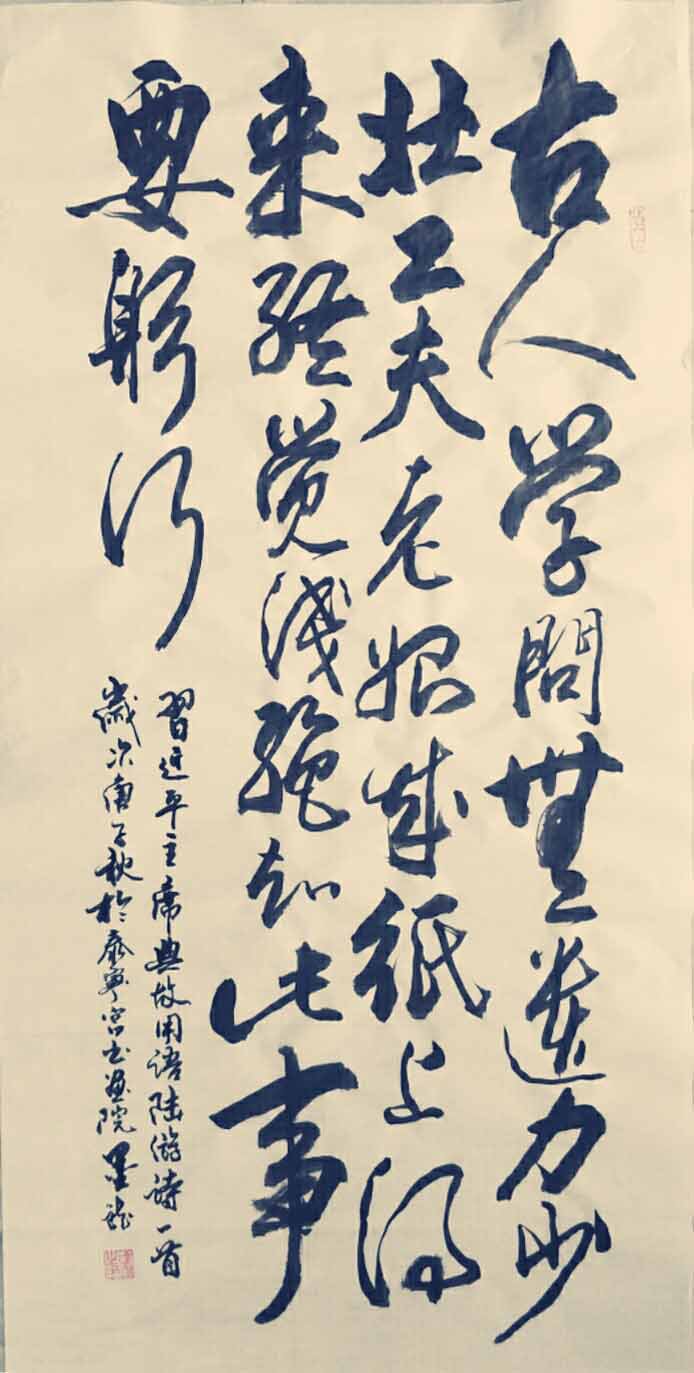 古人学問無遺力少
壮工夫老始成紙上得
来終覺浅絶知此事
要躬行
習近平主席典故用语陆游诗一首
歲次庚子秋於泰寧宫书画院墨龍